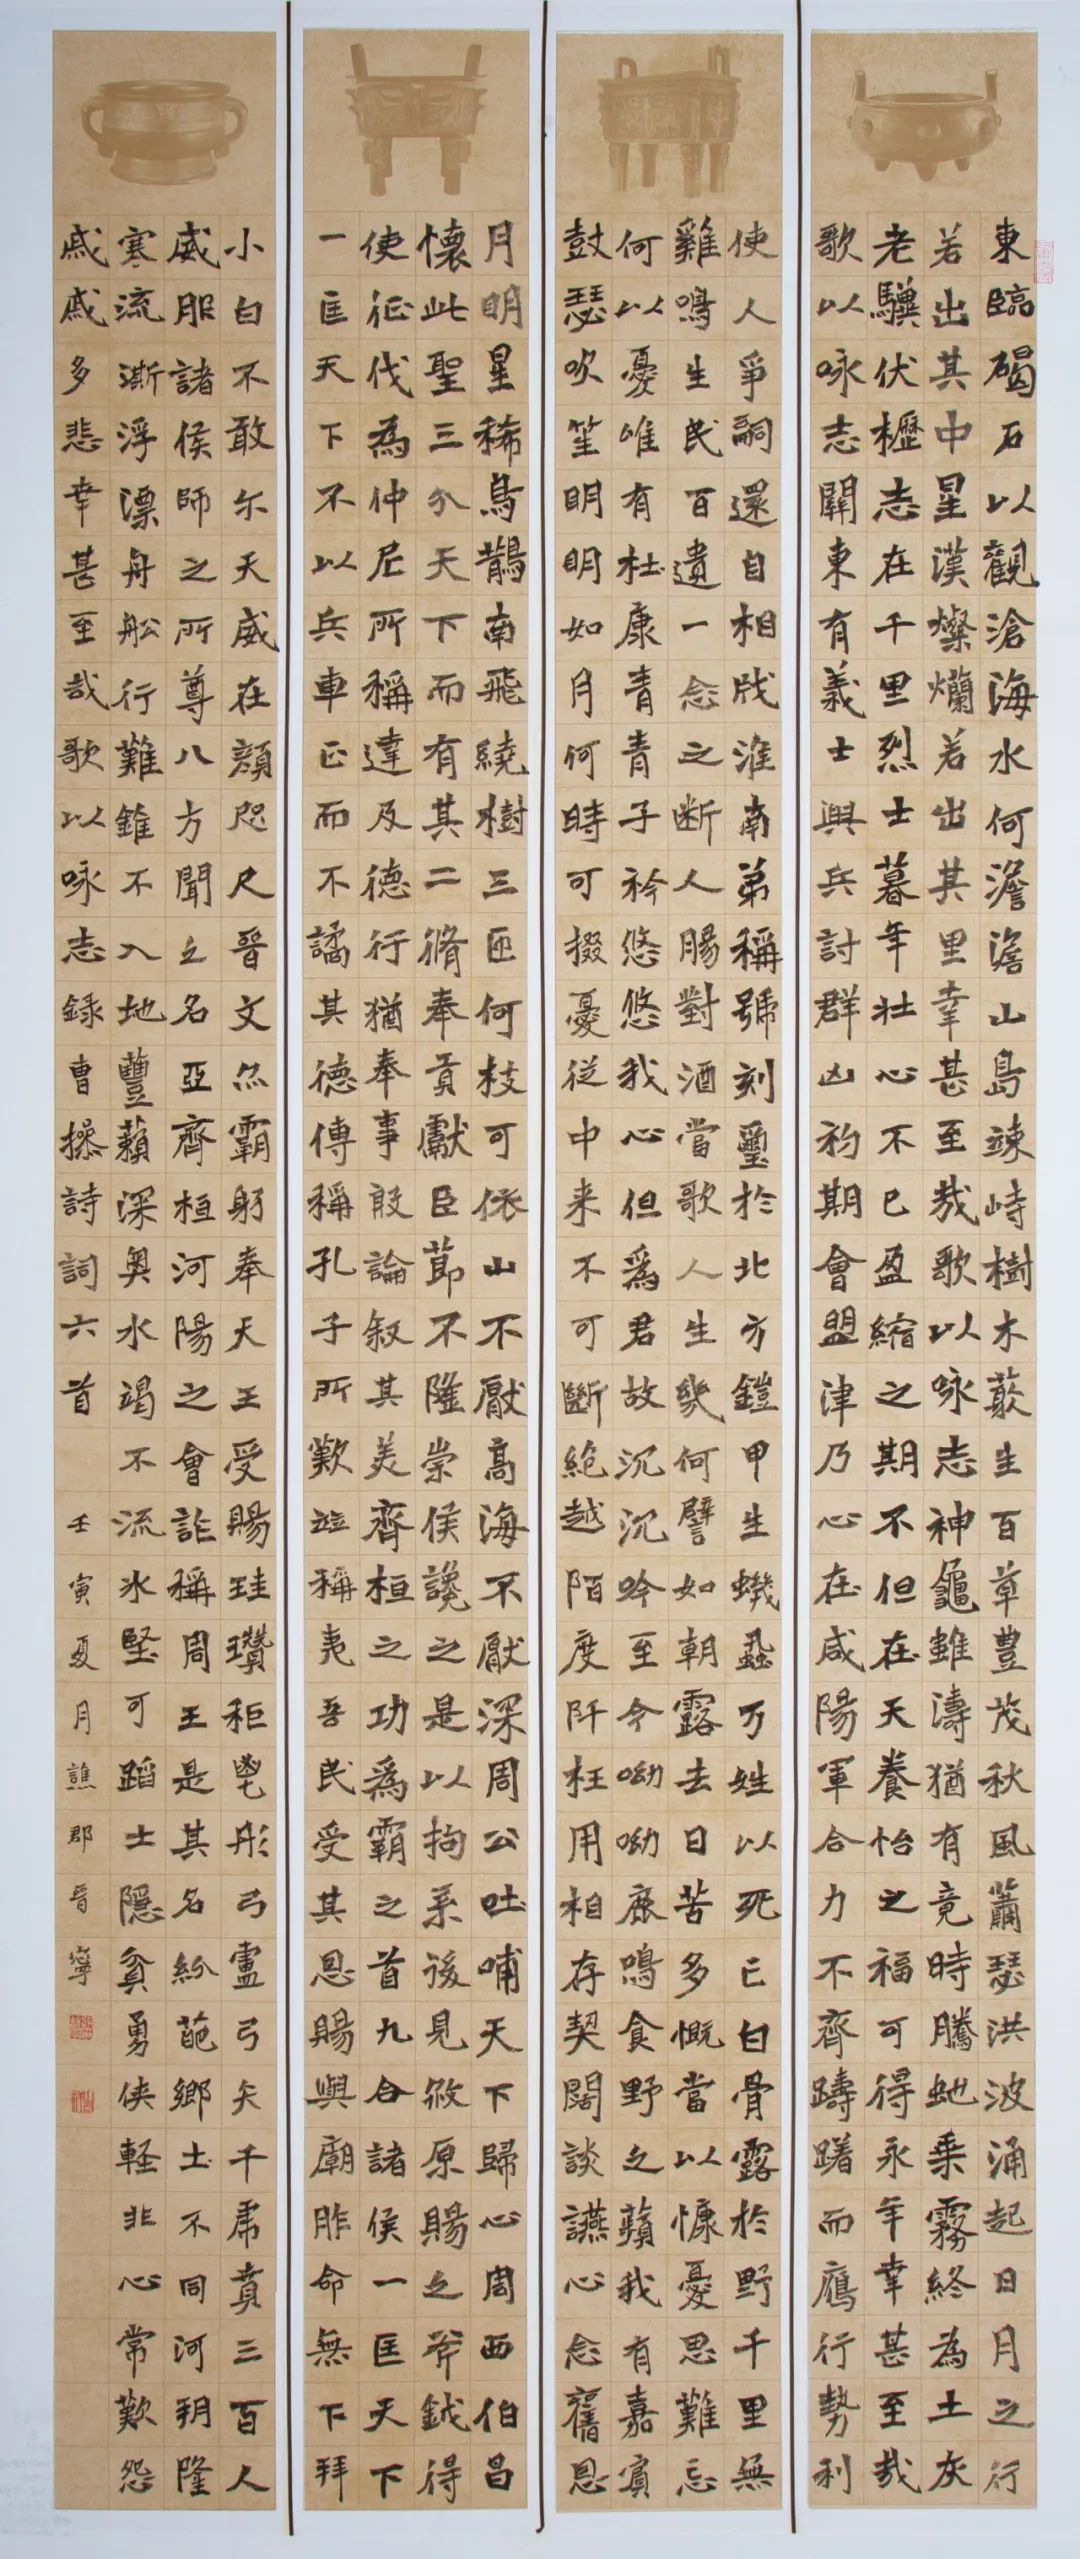 東臨碣石以觀滄海水何澹澹山島竦峙樹木蒙生百草豊茂秋風蕭瑟洪波涌起日月之行
若出其中星漢燦爛若出其里幸甚至哉歌以咏志神龜雖濤猶有竟時騰虵乗霧終為土灰
老驥伏櫪志在千里烈士暮年壯心不已盈縮之期不但在天養怡之福可得永年幸甚至哉
歌以咏志關東有義士興兵討群凶初期會盟津乃心在咸陽軍合力不齊躊躇而鴈行勢利
使人爭嗣還自相戕淮南弟稱號刻璽於北方鎧甲生蟣蝨万姓以死亡白骨露於野千里無
雞鳴生民百遺一念之断人腸對酒當歌人生幾何譬如朝露去日苦多慨當以慷憂思難忘
何以憂唯有杜康青青子衿悠悠我心但爲君故沉沉吟至今呦呦鹿鳴食野之蘋我有嘉賓
鼓瑟吹笙明明如月何時可掇憂從中来不可斷絶越陌度阡枉用相存契闊談讌心念舊恩
月明星稀烏鵲南飛繞樹三匝何枝可依山不厭高海不厭深周公吐哺天下歸心周西伯昌
懷此聖三分天下而有其二脩奉貢獻臣節不隆崇侯讒之是以拘系後見赦原賜之斧鉞得
使征伐為仲尼所稱達及德行猶奉事殷論叙其美齊桓之功爲霸之首九合諸侯一匡天下
一匡天下不以兵車正而不譎其德傳稱孔子所歎並稱夷吾民受其恩賜與廟胙命無下拜
小白不敢尔天威在顔咫尺晉文亦霸躬奉天王受賜珪瓚秬鬯彤弓盧弓矢千虎賁三百人
威服諸侯師之所尊八方聞之名亞齊桓河陽之會詐稱周王是其名紛葩鄉土不同河朔隆
寒流澌浮漂舟舩行難錐不入地豐藾深奥水竭不流氷堅可蹈士隱貧勇侠軽非心常歎怨
戚戚多悲幸甚至哉歌以咏志録曹操詩詞六首 壬寅夏月譙郡晉寧